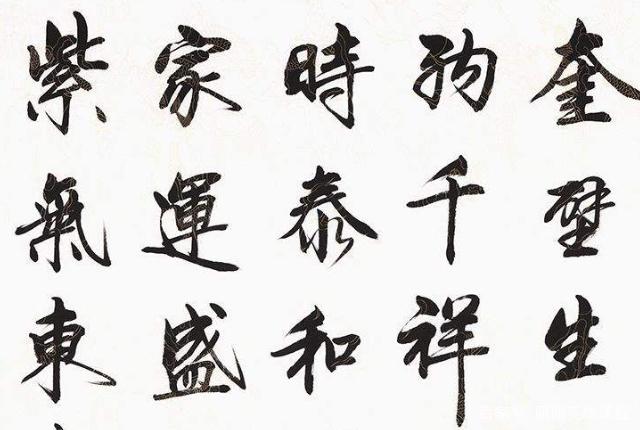 奎壁生
千祥
時泰和
家運盛
紫氣東